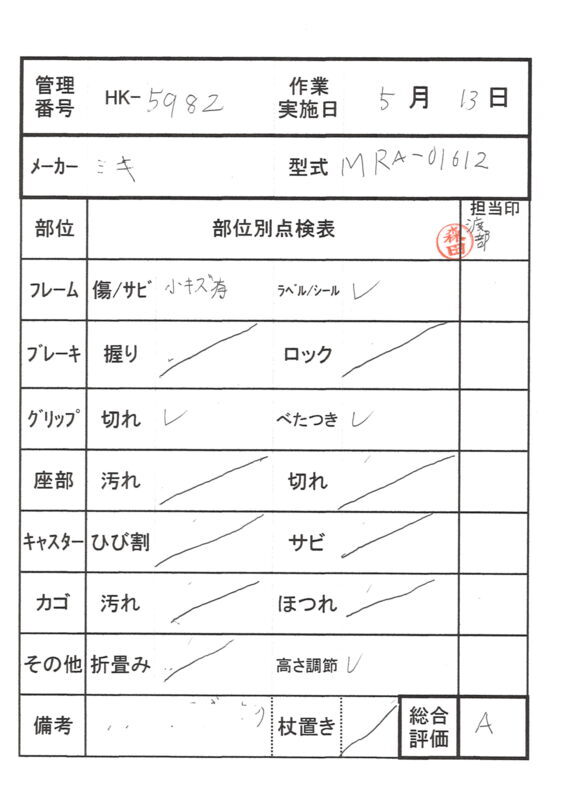 管理番号 HK-5982 作業実施日 5月13日
メーカー ミキ 型式 MRA-01612
部位 部位別点検表 担当印
森田 渡部
フレーム 傷/サビ 小キズ有 ラベル/シール ✓
ブレーキ 握り ロック
グリップ 切れ ✓ べたつき ✓
座部 汚れ 切れ
キャスター ひび割 サビ
カゴ 汚れ ほつれ
その他 折畳み 高さ調節 ✓
備考 杖置き 総合評価 A